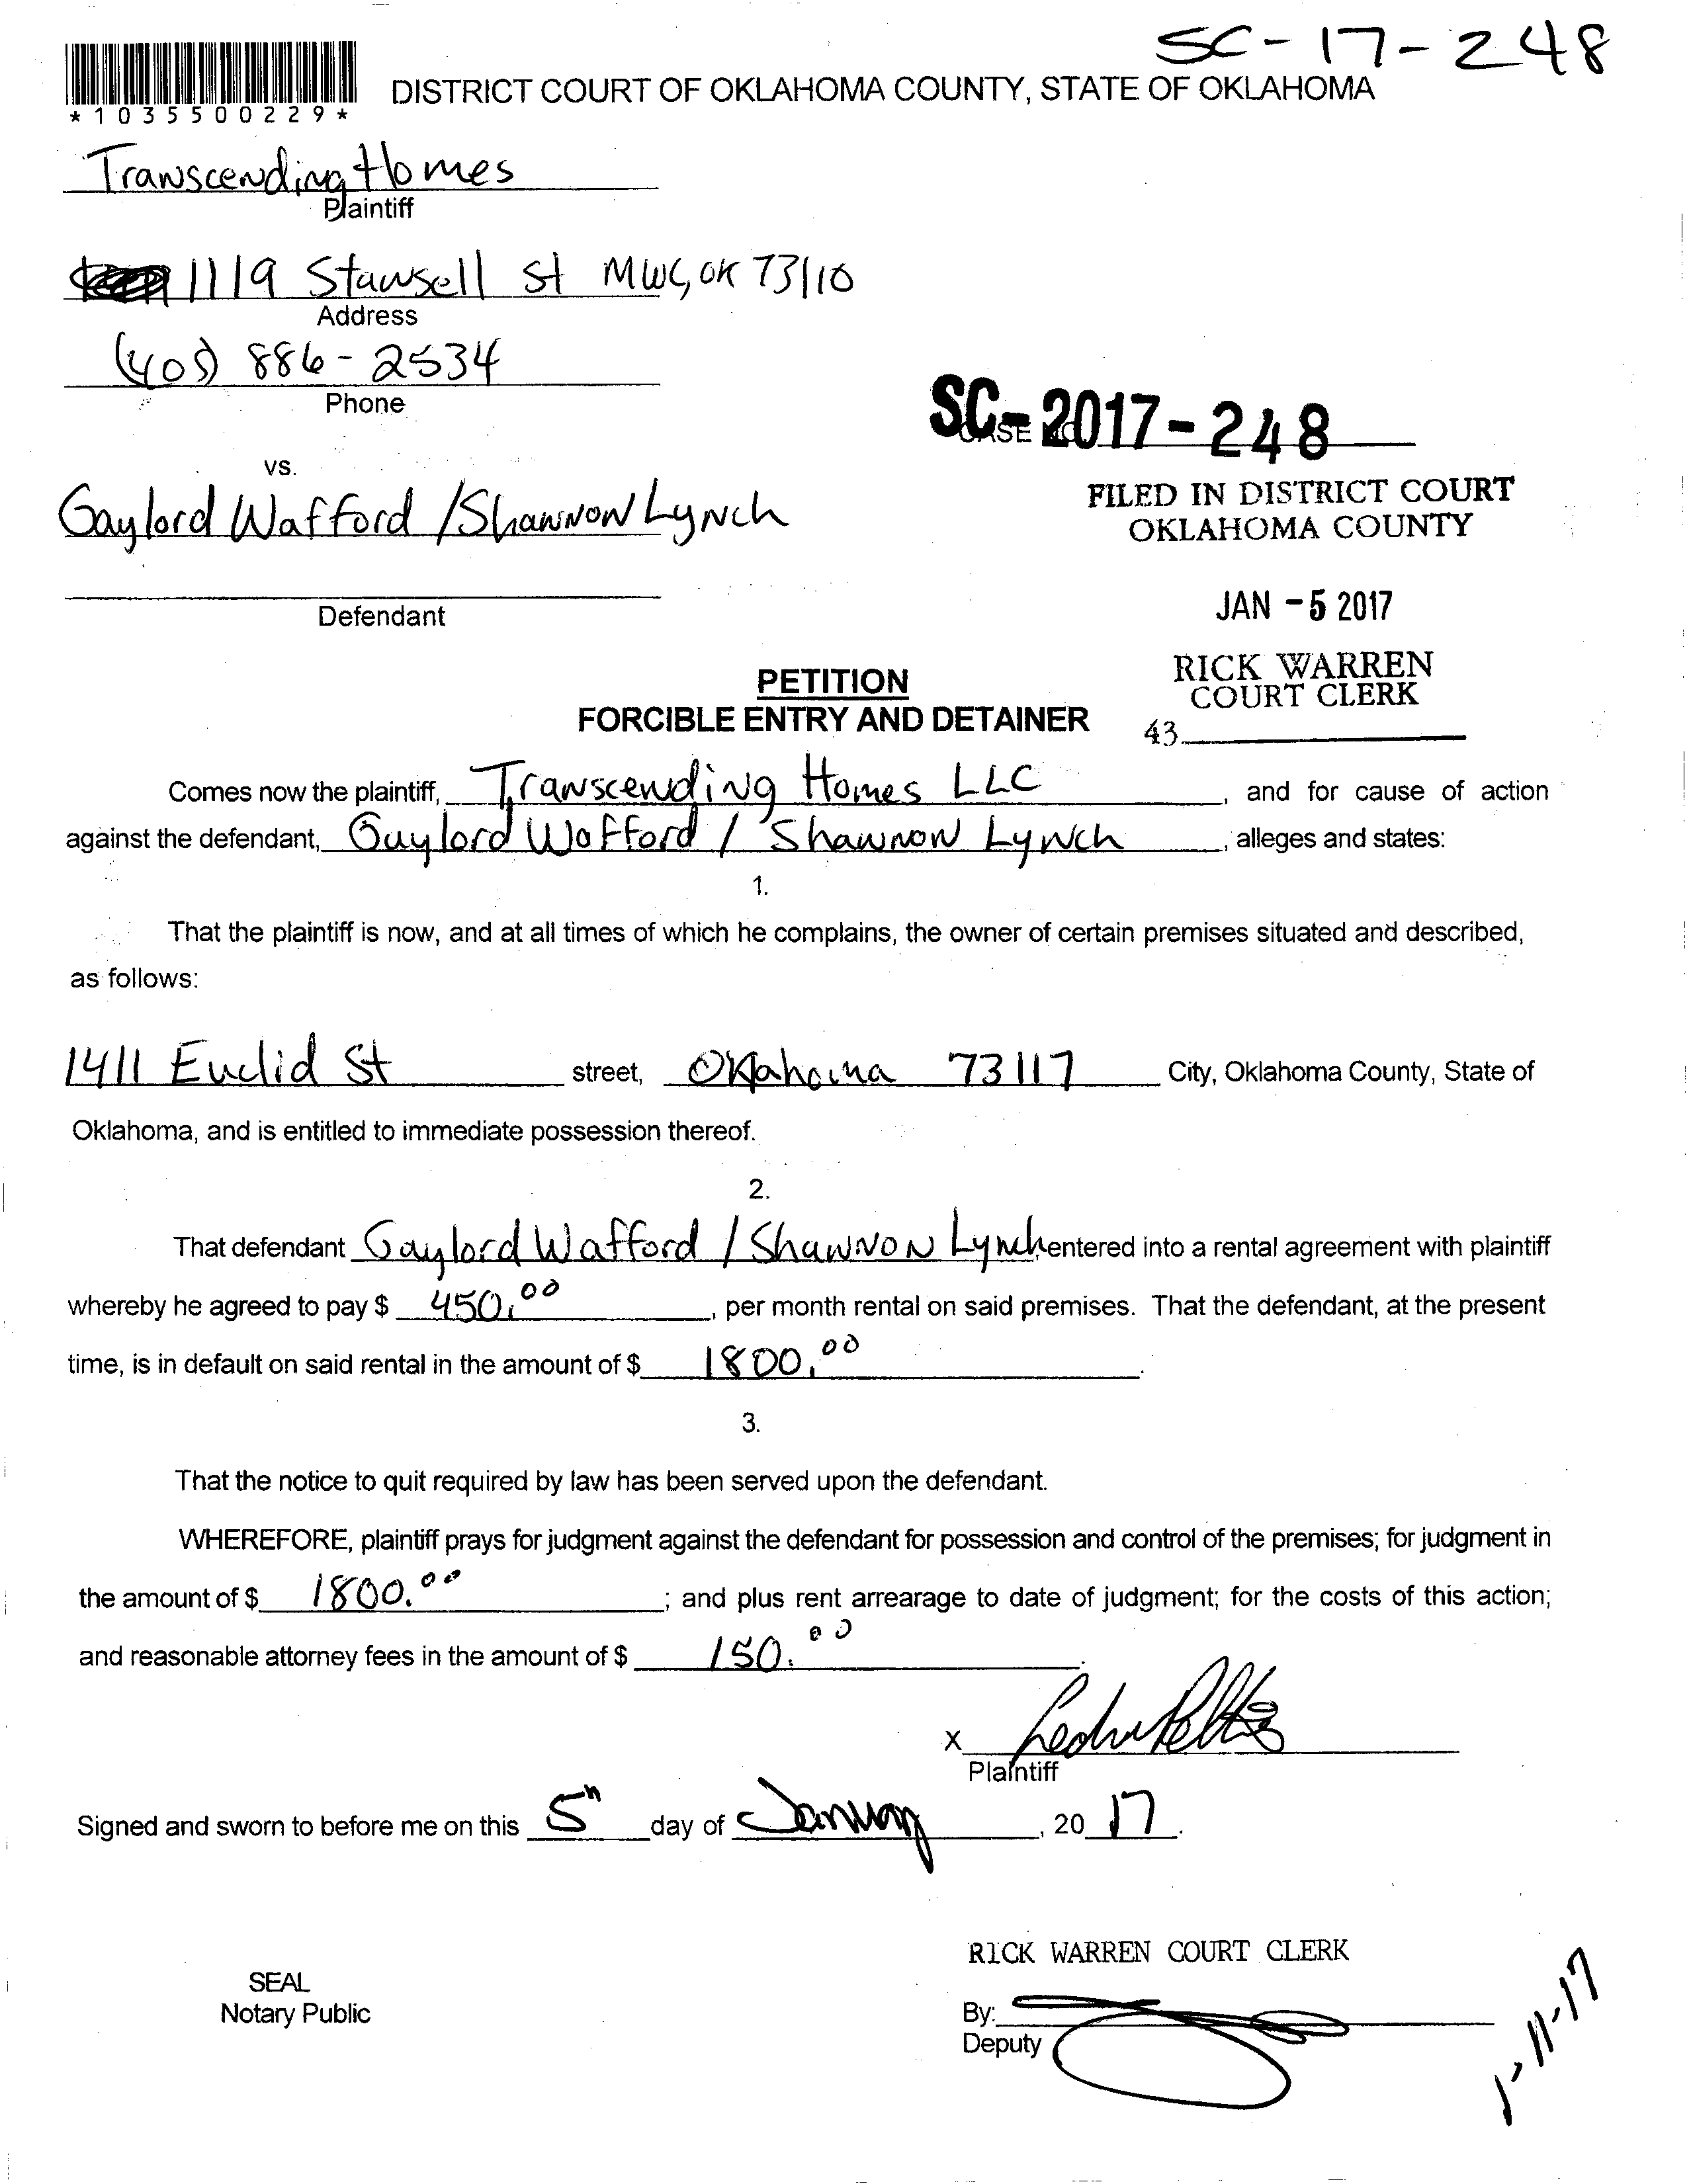 SC-17-248
*1035500229*
DISTRICT COURT OF OKLAHOMA COUNTY, STATE OF OKLAHOMA
Transcending Homes
Plaintiff
1119 Stansell St MWC, OK 73110
Address
(405) 886-2534
Phone
SC-2017-248
CASE NO
vs.
Gaylord Wafford /Shannon Lynch
FILED IN DISTRICT COURT
OKLAHOMA COUNTY
Defendant
JAN -5 2017
RICK WARREN
COURT CLERK
43
PETITION
FORCIBLE ENTRY AND DETAINER
Comes now the plaintiff, Transcending Homes LLC, and for cause of action
against the defendant, Gaylord Wafford / Shannon Lynch, alleges and states:
1.
That the plaintiff is now, and at all times of which he complains, the owner of certain premises situated and described,
as follows:
1411 Euclid St street, Oklahoma 73117 City, Oklahoma County, State of
Oklahoma, and is entitled to immediate possession thereof.
2.
That defendant Gaylord Wafford / Shannon Lynch entered into a rental agreement with plaintiff
whereby he agreed to pay $ 450.00, per month rental on said premises. That the defendant, at the present
time, is in default on said rental in the amount of $ 1800.00.
3.
That the notice to quit required by law has been served upon the defendant.
WHEREFORE, plaintiff prays for judgment against the defendant for possession and control of the premises; for judgment in
the amount of $ 1800.00; and plus rent arrearage to date of judgment; for the costs of this action;
and reasonable attorney fees in the amount of $ 150.00.
X
Plaintiff
Signed and sworn to before me on this 5th day of January, 2017.
RICK WARREN COURT CLERK
SEAL
Notary Public
By:
Deputy
1-11-17